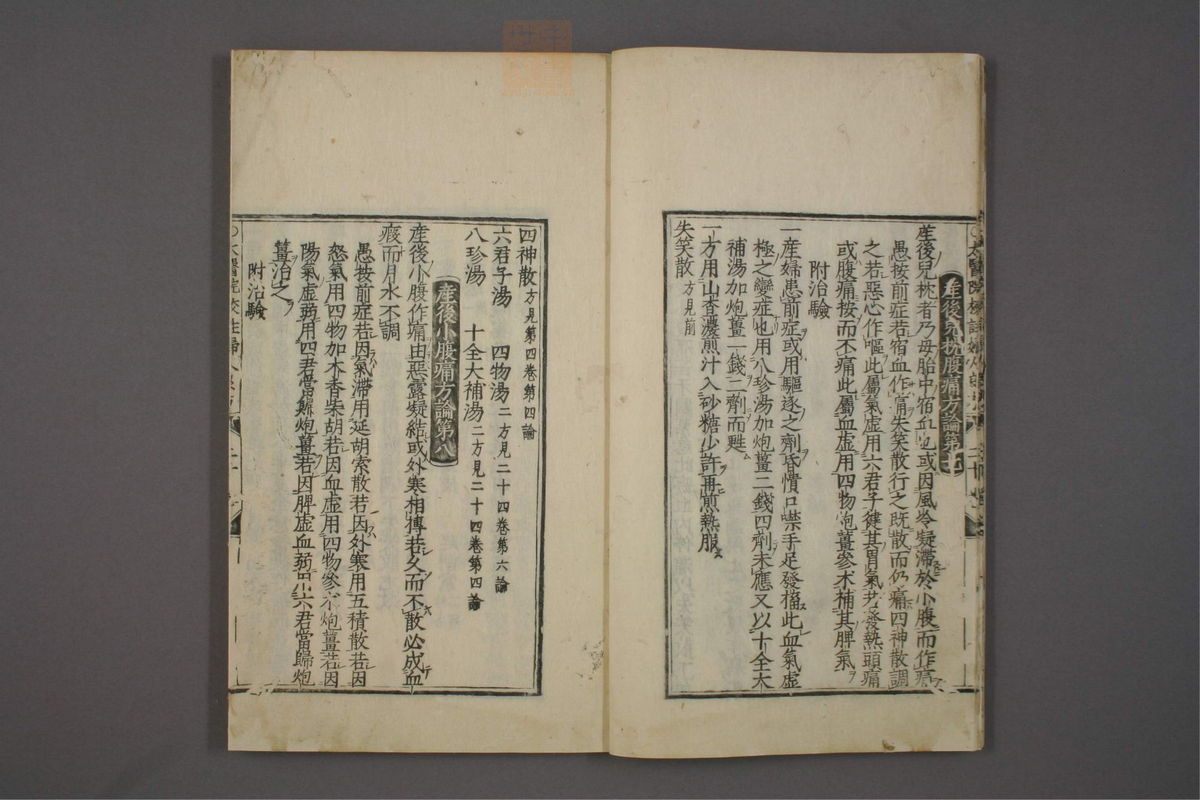 産後兒枕腹痛方論第七
産後兒枕者乃母胎中宿血也或因風冷凝滯於小腹而作痛
愚按前症若宿血作痛失笑散行之既散而仍痛四神散調
之若惡心作嘔此屬氣虛用六君子健其胃氣若發熱頭痛
或腹痛按而不痛此屬血虛用四物炮薑參朮補其脾氣
附治驗
一産婦患前症或用驅逐之劑昏憒口噤手足發搐此血氣虛
極之變症也用八珍湯加炮薑二錢四劑未應又以十全大
補湯加炮薑一錢二劑而甦
一方用山查濃煎汁入砂糖少許再煎熱服
失笑散方見前
四神散方見第四卷第四論
六君子湯 四物湯二方見二十四卷第六論
八珍湯 十全大補湯二方見二十四卷第四論
産後小腹痛方論第八
産後小腹作痛由惡露凝結或外寒相搏若久而不散必成血
瘕而月水不調
愚按前症若因氣滯用延胡索散若因外寒用五積散若因
怒氣用四物加木香柴胡若因血虛用四物參朮炮薑若因
陽氣虛弱用四君當歸炮薑若因脾虛血弱用六君當歸炮
薑治之
附治驗